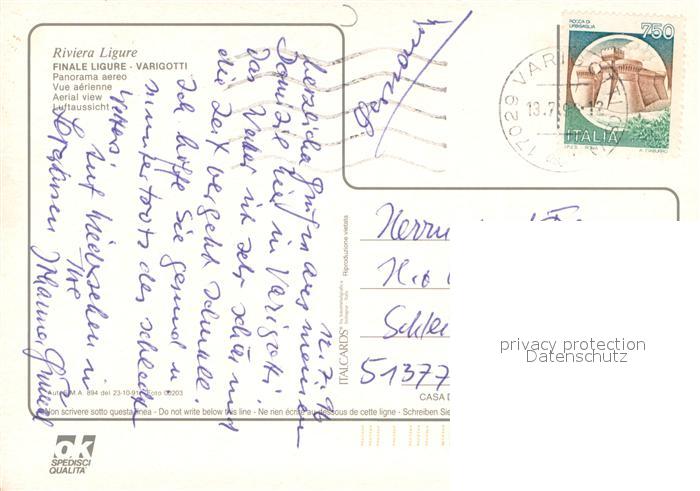 Riviera Ligure
FINALE LIGURE - VARIGOTTI
Panorama aereo
Vue aérienne
Aerial view
Luftaussicht
ROCCA DI
URBISAGLIA
750
ITALIA
17029 VARIGOTTI
13.7.9
12.7.96
Herzliche Grüße aus meinem
Domizil hier in Varigotti!
Das Wetter ist sehr schön und
die Zeit vergeht schnell.
Ich hoffe Sie gesund u.
munter trotz des schlechten
Wetters!
Auf Wiedersehen in
Ihre
Johanna
Herrn
51377
CASA D
ITALCARDS
Riproduzione vietata
Aut. S.M.A. 894 del 23-10-91 Foto 00203
Non scrivere sotto questa linea - Do not write below this line - Ne rien écrire au-dessous de cette ligne - Schreiben Sie
ok
SPEDISCI
QUALITA'
privacy protection
Datenschutz